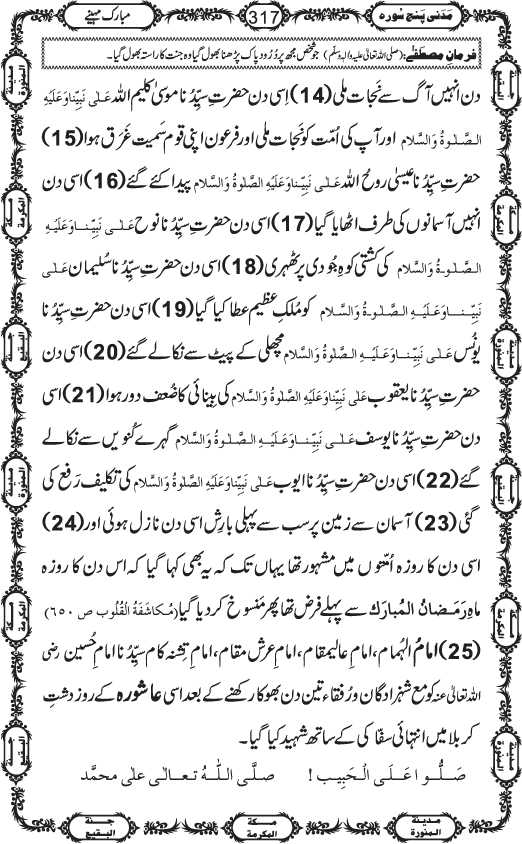 مَدَنی پنج سورہ 317 مبارک مہینے
فرمانِ مصطَفٰے: (صلی اللہ تعالیٰ علیہ والہ وسلم) جو شخص مجھ پر دُرُودِ پاک پڑھنا بھول گیا وہ جنت کا راستہ بھول گیا۔
دن انہیں آگ سے نَجات ملی (14) اِسی دن حضرتِ سیِّدُنا موسیٰ کلیم اللہ عَلٰی نَبِیِّنا وَعَلَیْہِ
الصَّلٰوۃُ وَالسَّلام اور آپ کی اُمّت کو نَجات ملی اور فرعون اپنی قوم سَمیت غَرَق ہوا (15)
حضرتِ سیِّدُنا عیسیٰ روحُ اللہ عَلٰی نَبِیِّنا وَعَلَیْہِ الصَّلٰوۃُ وَالسَّلام پیدا کئے گئے (16) اسی دن
انہیں آسمانوں کی طرف اٹھایا گیا (17) اسی دن حضرتِ سیِّدُنا نوح عَلٰی نَبِیِّنا وَعَلَیْہِ
الصَّلٰوۃُ وَالسَّلام کی کَشتی کوہِ جُودی پر ٹھہری (18) اسی دن حضرتِ سیِّدُنا سُلیمان عَلٰی
نَبِیِّنا وَعَلَیْہِ الصَّلٰوۃُ وَالسَّلام کو مُلکِ عظیم عطا کیا گیا (19) اسی دن حضرتِ سیِّدُنا
یونُس عَلٰی نَبِیِّنا وَعَلَیْہِ الصَّلٰوۃُ وَالسَّلام مچھلی کے پیٹ سے نکالے گئے (20) اسی دن
حضرتِ سیِّدُنا یعقوب عَلٰی نَبِیِّنا وَعَلَیْہِ الصَّلٰوۃُ وَالسَّلام کی بِینائی کا ضُعف دور ہوا (21) اسی
دن حضرتِ سیِّدُنا یوسف عَلٰی نَبِیِّنا وَعَلَیْہِ الصَّلٰوۃُ وَالسَّلام گہرے کُنویں سے نکالے
گئے (22) اسی دن حضرتِ سیِّدُنا ایوب عَلٰی نَبِیِّنا وَعَلَیْہِ الصَّلٰوۃُ وَالسَّلام کی تکلیف رَفع کی
گئی (23) آسمان سے زمین پر سب سے پہلی بارِش اسی دن نازِل ہوئی اور (24)
اسی دن کا روزہ اُمّتوں میں مشہور تھا یہاں تک کہ یہ بھی کہا گیا کہ اس دن کا روزہ
ماہِ رَمَضانُ المُبارَک سے پہلے فرض تھا پھر مَنسوخ کر دیا گیا (مُکاشَفَۃُ الْقُلُوب ص ٦٥٠)
(25) امامُ الہُمام، امامِ عالیمقام، امامِ عرش مقام، امامِ تِشنہ کام سیِّدُنا امامِ حُسین رضی
اللہ تعالیٰ عنہ کو مع شہزادگان و رُفقاء تین دن بھوکا رکھنے کے بعد اسی عاشورہ کے روز دشتِ
کربلا میں انتہائی سفّاکی کے ساتھ شہید کیا گیا۔
صَلُّوا عَلَی الْحَبِیب! صلَّی اللّٰہُ تعالٰی علٰی محمَّد
مدینۃ المنورۃ
مکۃ المکرمۃ
جنۃ البقیع
مدینۃ المنورۃ
مکۃ المکرمۃ
جنۃ البقیع
جنۃ البقیع
مکۃ المکرمۃ
مدینۃ المنورۃ
جنۃ البقیع
مکۃ المکرمۃ
مدینۃ المنورۃ
جنۃ البقیع
مکۃ المکرمۃ
مدینۃ المنورۃ